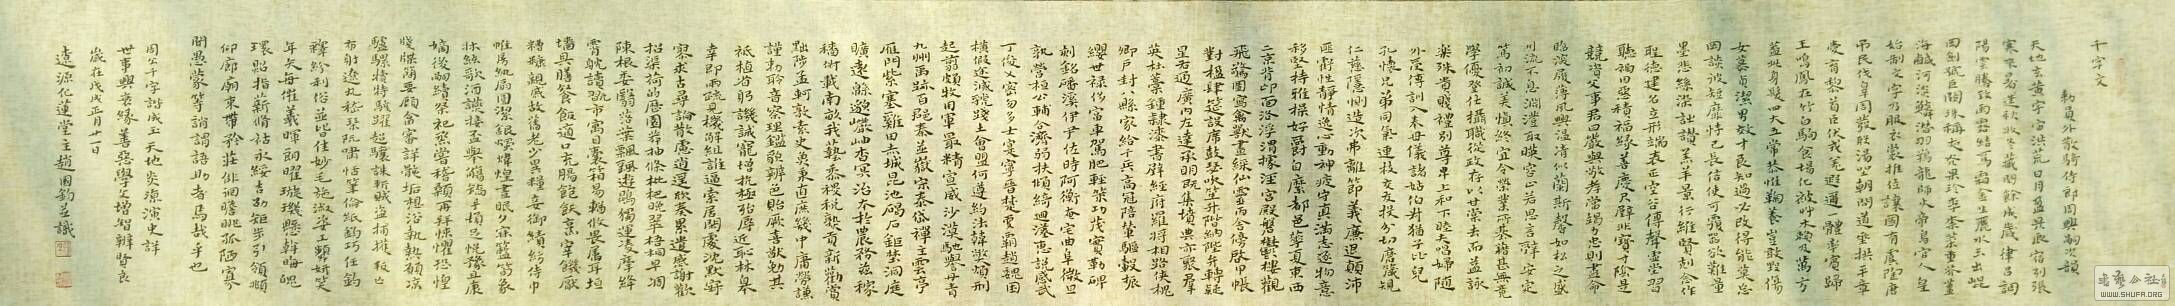 千字文
勅員外散騎侍郎周興嗣次韻
天地玄黃宇宙洪荒日月盈昃辰宿列張
寒來暑往秋收冬藏閏餘成歲律呂調
陽雲騰致雨露結為霜金生麗水玉出崐
岡劍號巨闕珠稱夜光果珍李柰菜重芥薑
海鹹河淡鱗潛羽翔龍師火帝鳥官人皇
始制文字乃服衣裳推位讓國有虞陶唐
吊民伐罪周發殷湯坐朝問道垂拱平章
愛育黎首臣伏戎羌遐邇一體率賓歸
王鳴鳳在竹白駒食場化被草木賴及萬方
蓋此身髮四大五常恭惟鞠養豈敢毀傷
女慕貞潔男效才良知過必改得能莫忘
罔談彼短靡恃己長信使可覆器欲難量
墨悲絲染詩讚羔羊景行維賢剋念作
聖德建名立形端表正空谷傳聲虛堂習
聽禍因惡積福緣善慶尺璧非寶寸陰是
競資父事君曰嚴與敬孝當竭力忠則盡命
臨深履薄夙興溫凊似蘭斯馨如松之盛
川流不息淵澄取暎容止若思言辭安定
篤初誠美慎終宜令榮業所基籍甚無竟
學優登仕攝職從政存以甘棠去而益詠
樂殊貴賤禮別尊卑上和下睦夫唱婦隨
外受傅訓入奉母儀諸姑伯叔猶子比兒
孔懷兄弟同氣連枝交友投分切磨箴規
仁慈隱惻造次弗離節義廉退顛沛
匪虧性靜情逸心動神疲守真志滿逐物意
移堅持雅操好爵自縻都邑華夏東西
二京背邙面洛浮渭據涇宮殿盤鬱樓觀
飛驚圖寫禽獸畫綵仙靈丙舍傍啟甲帳
對楹肆筵設席鼓瑟吹笙升階納陛弁轉疑
星右通廣內左達承明既集墳典亦聚群
英杜藁鍾隸漆書壁經府羅將相路俠槐
卿戶封八縣家給千兵高冠陪輦驅轂振
纓世祿侈富車駕肥輕策功茂實勒碑
刻銘磻溪伊尹佐時阿衡奄宅曲阜微旦
孰營桓公輔合濟弱扶傾綺迴漢惠說感武
丁俊乂密勿多士寔寧晉楚更霸趙魏困
橫假途滅虢踐土會盟何遵約法韓弊煩刑
起翦頗牧用軍最精宣威沙漠馳譽丹青
九州禹跡百郡秦並嶽宗泰岱禪主云亭
雁門紫塞雞田赤城昆池碣石鉅野洞庭
曠遠綿邈巖岫杳冥治本於農務茲稼
穡俶載南畝我藝黍稷稅熟貢新勸賞
黜陟孟軻敦素史魚秉直庶幾中庸勞謙
謹勅聆音察理鑑貌辨色貽厥嘉猷勉其
祗植省躬譏誡寵增抗極殆辱近恥林皋
幸即兩疏見機解組誰逼索居閑處沈默寂
寥求古尋論散慮逍遙欣奏累遣慼謝歡
招渠荷的歷園莽抽條枇杷晚翠梧桐早凋
陳根委翳落葉飄颻遊鵾獨運凌摩絳
霄耽讀翫市寓目囊箱易輶攸畏屬耳垣
墻具膳餐飯適口充腸飽飫烹宰饑厭
糟糠親戚故舊老少異糧妾御績紡侍巾
帷房紈扇圓潔銀燭煒煌晝眠夕寐籃筍象
床絃歌酒讌接杯舉觴矯手頓足悅豫且康
嫡後嗣續祭祀烝嘗稽顙再拜悚懼恐惶
牋牒簡要顧答審詳骸垢想浴執熱願涼
驢騾犢特駭躍超驤誅斬賊盜捕獲叛亡
布射遼丸嵇琴阮嘯恬筆倫紙鈞巧任釣
釋紛利俗並皆佳妙毛施淑姿工顰妍笑
年矢每催羲暉朗曜璇璣懸斡晦魄
環照指薪脩祜永綏吉劭矩步引領俯
仰廊廟束帶矜莊徘徊瞻眺孤陋寡
聞愚蒙等誚謂語助者焉哉乎也
周公千字譜成玉天地炎源演史詳
世事興衰緣善惡學文增智辨賢良
歲在戊戌正月廿一日
遠源化蓮堂主趙國鈞並識
书艺公社
WWW.SHUFA.ORG